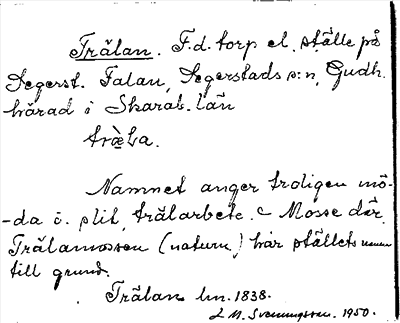 Trälan. F.d. torp el. ställe på
Segerst. Falan, Segerstads s:n, Gudh.
härad i Skarab. län
Namnet anger troligen mö-
-da o. slit, trälarbete. Mosse där,
Trälamossen (naturn.) har ställets namn
till grund.
Trälan hn. 1838.
M. Svenungsson. 1950.